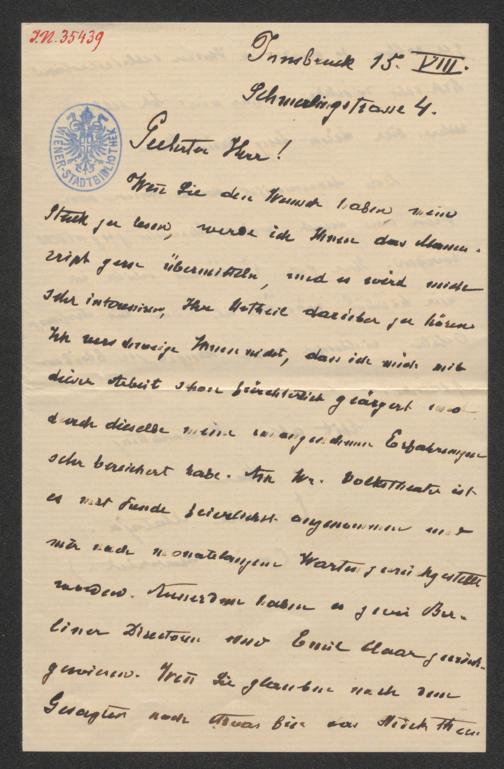 I.N. 35439
Innsbruck 15. VIII.
Schmerlingstrasse 4.
WIENER-STADTBIBLIOTHEK
Geehrter Herr!
Wenn Sie den Wunsch haben mein
Stück zu lesen, werde ich Ihnen das Manu-
script gern übermitteln, und es wird mich
sehr interessiren, Ihr Urtheil darüber zu hören
Ich verschweige Ihnen nicht, dass ich mich mit
dieser Arbeit schon fürchterlich geärgert und
durch dieselbe meine unangenehmen Erfahrungen
sehr bereichert habe. Am Wr. Volkstheater ist
es mit Freude feierlichst angenommen und
mir nach monatelangem Warten zurückgestellt
worden. Ausserdem haben es zwei Ber-
liner Directoren und Emil Claar zurück-
gewiesen. Wenn Sie glauben nach dem
Gesagten noch etwas für das Stück thun